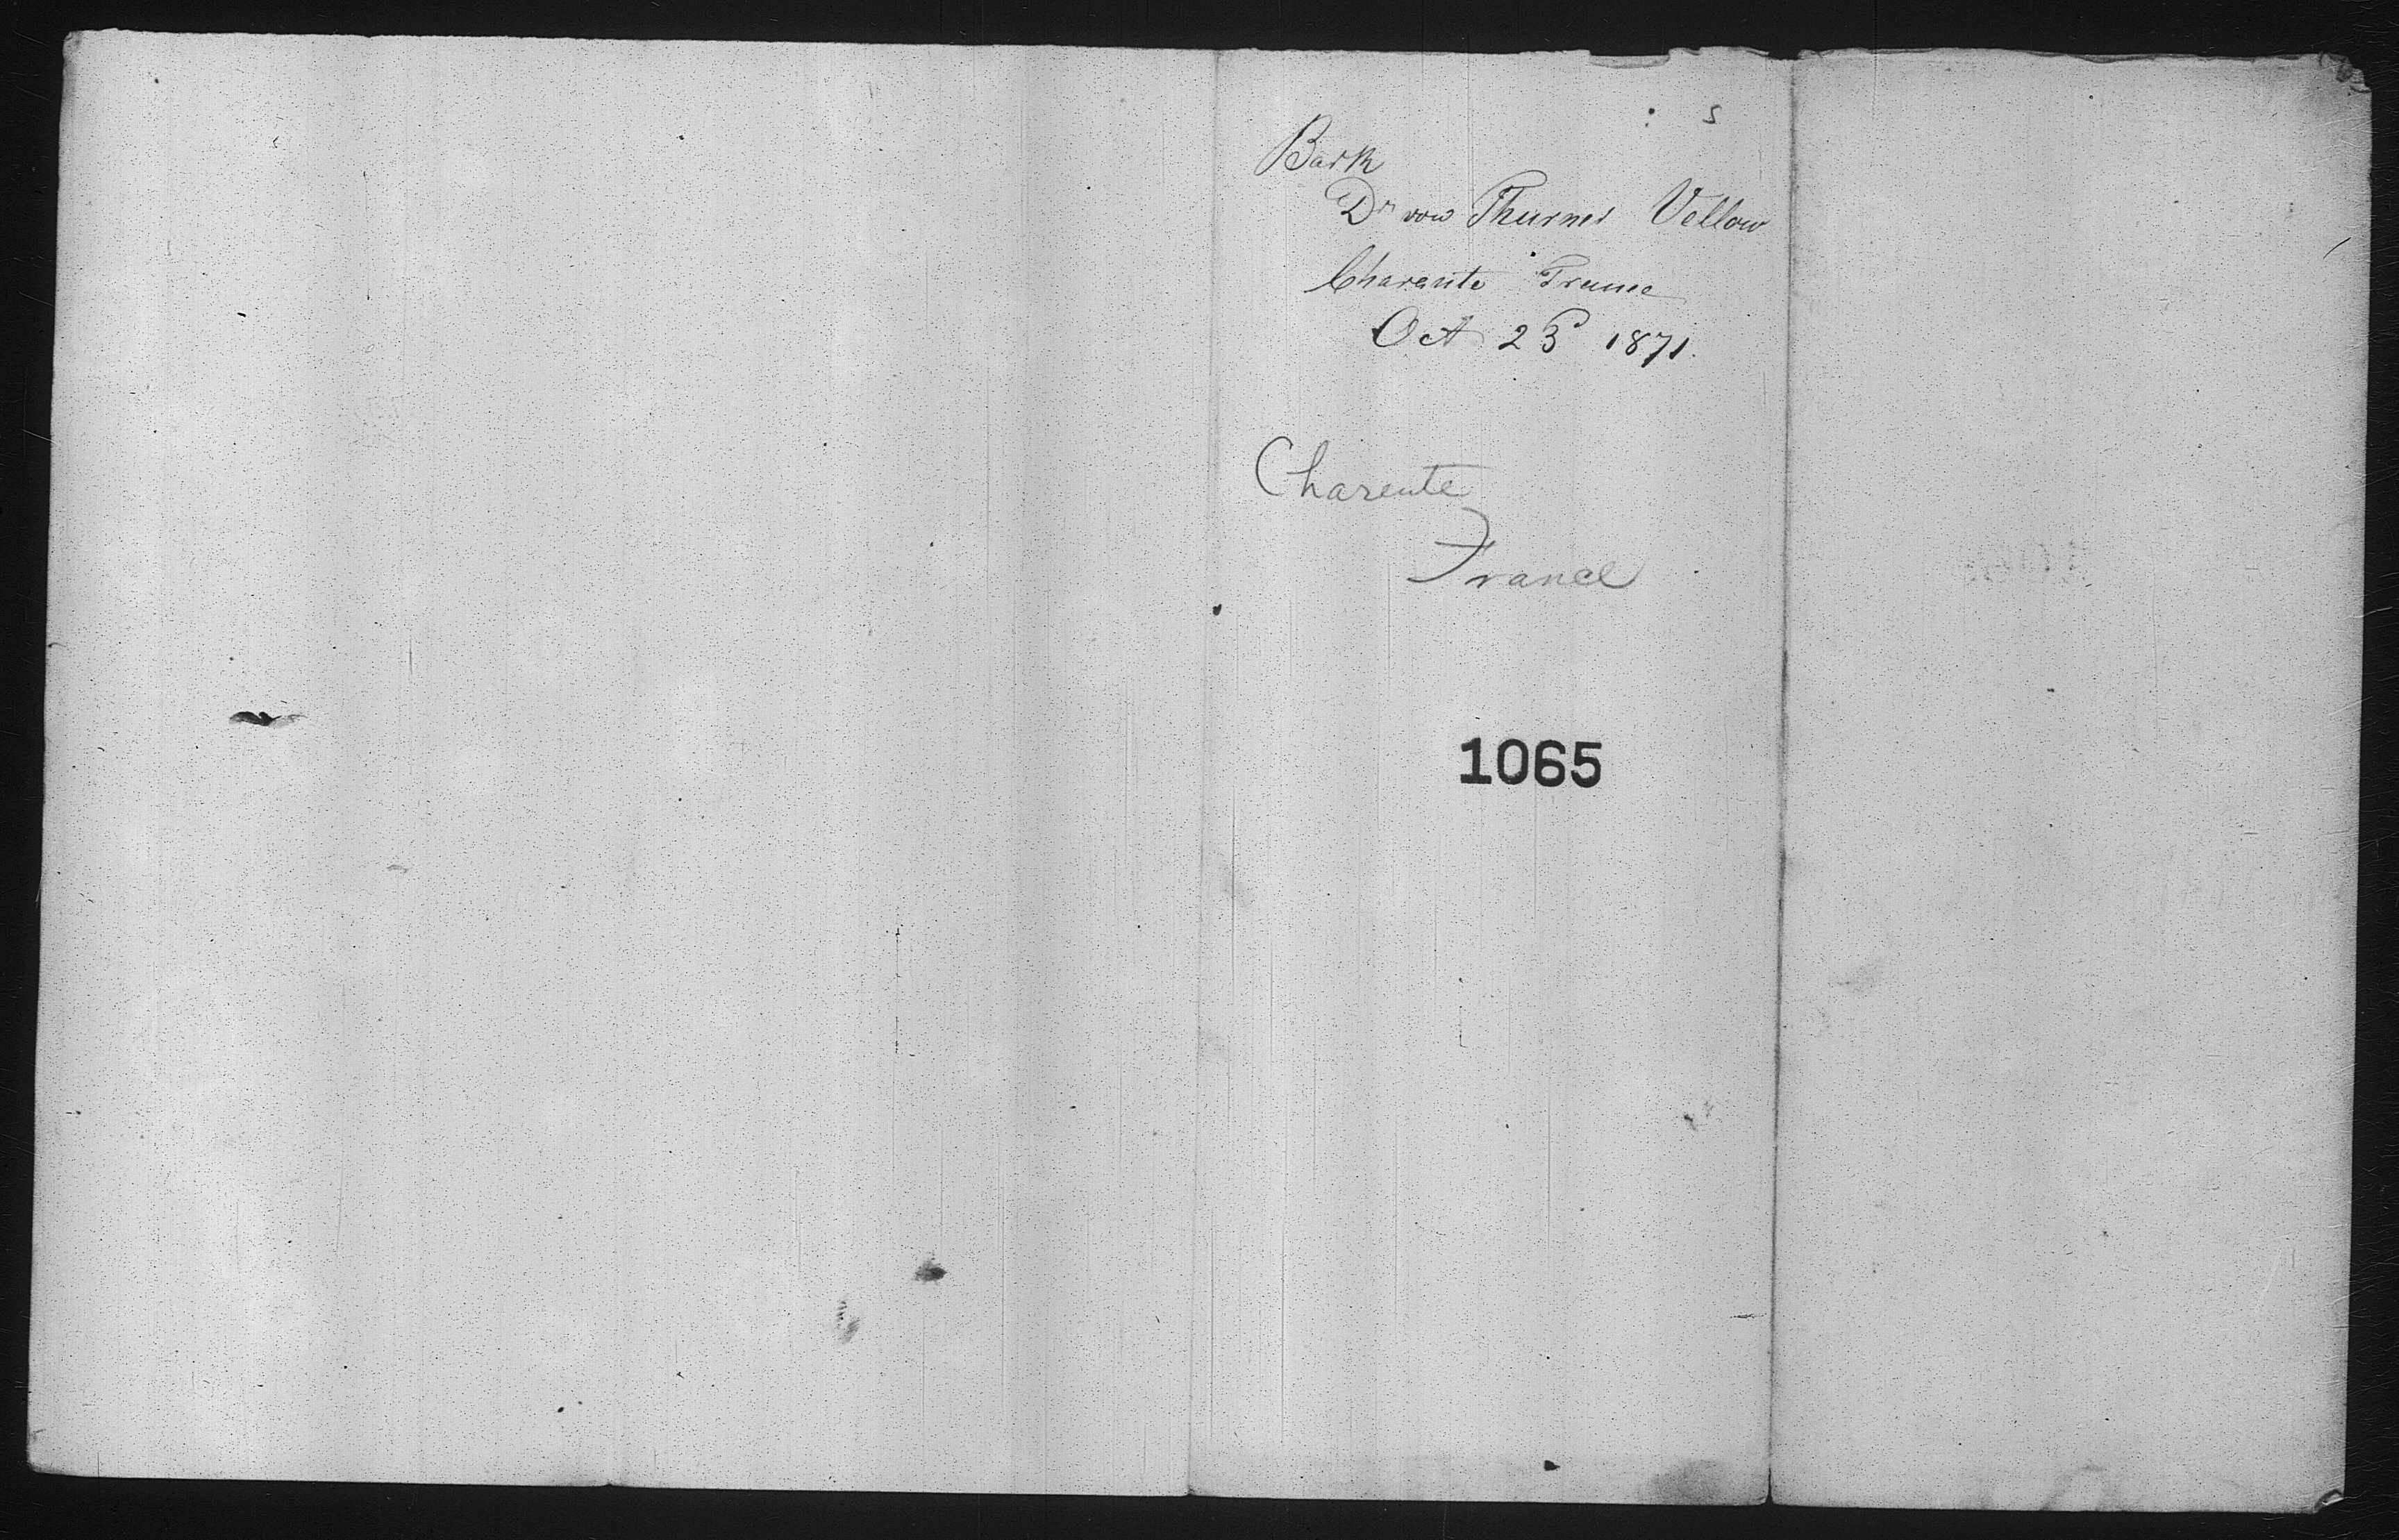 s
Bark
Dr von Thurnes Vellow
Charente France
Oct 23d 1871.
Charente
France
1065